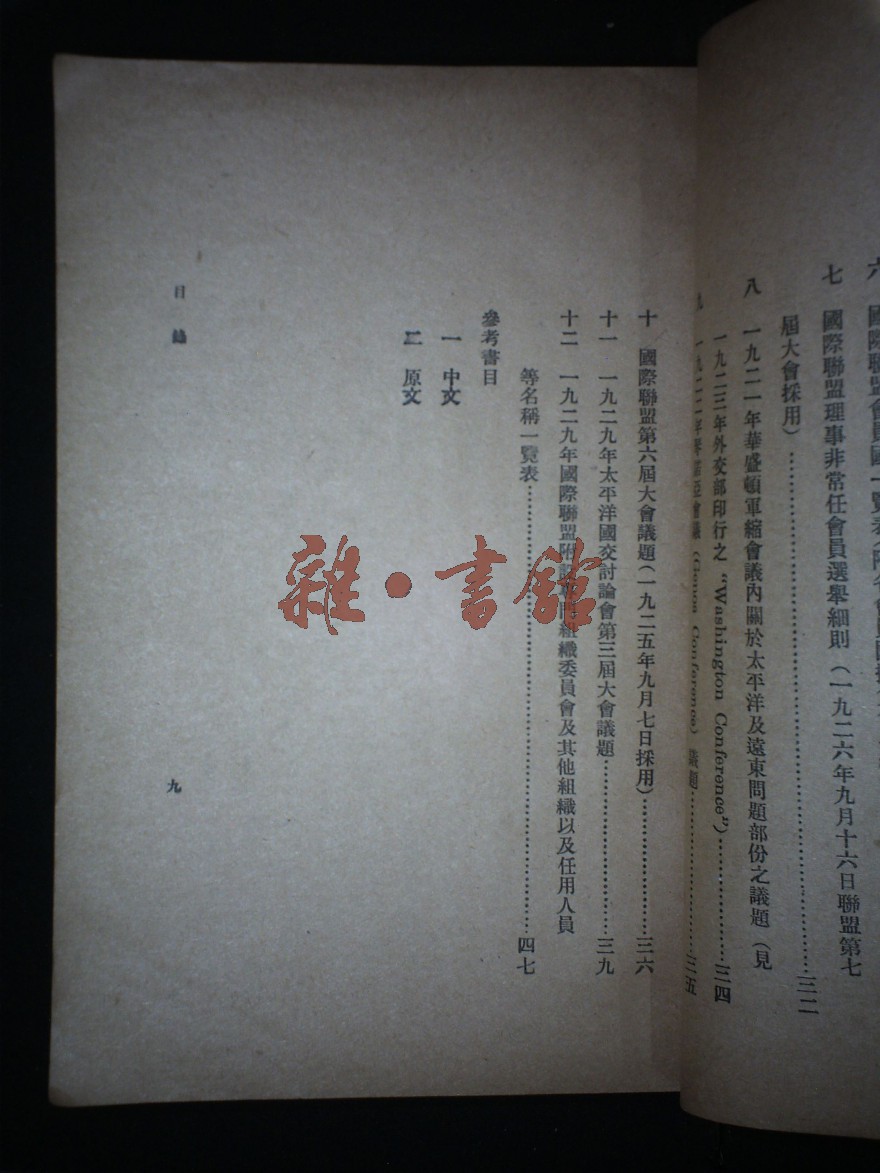 六　國際聯盟會員國一覽表
七　國際聯盟理事非常任會員選舉細則（一九二六年九月十六日聯盟第七
屆大會採用）……三二
八　一九二一年華盛頓軍縮會議內關於太平洋及遠東問題部份之議題（見
一九二三年外交部印行之 “Washington Conference”）……三四
九　一九二二年 會議（Genoa Conference）議題……三五
十　國際聯盟第六屆大會議題（一九二五年九月七日採用）……三六
十一　一九二九年太平洋國交討論會第三屆大會議題……三九
十二　一九二九年國際聯盟附設專門組織委員會及其他組織以及任用人員
等名稱一覽表……四七
參考書目
一　中文
二　原文
目錄
九
雜·書館